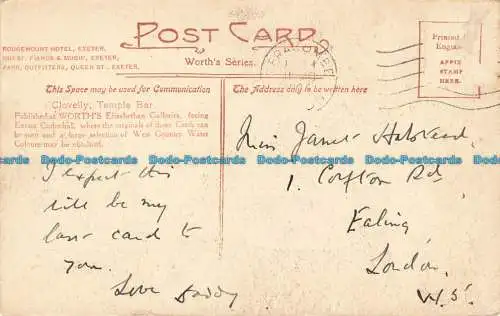 POST CARD
ROUGEMOUNT HOTEL, EXETER.
GREAT PIANOS & MUSIC, EXETER.
PARK, OUTFITTERS, QUEEN ST., EXETER.
Worth's Series.
ILFRACOMBE
Printed
Engla
APPIX
STAMP
HERE.
This Space may be used for Communication
The Address only to be written here
Clovelly, Temple Bar
Published at WORTH'S Elizabethan Galleries, facing
Exeter Cathedral, where the originals of these Cards can
be seen and a large selection of West Country Water
Colours may be obtained.
Dodo-Postcards Dodo-Postcards Dodo-Postcards Dodo-Postcards Dodo-Postcards
I expect this
will be my
last card to
you.
Love Daddy
Miss Janet Halstead
1. Corfton Rd
Ealing
London.
W.5.